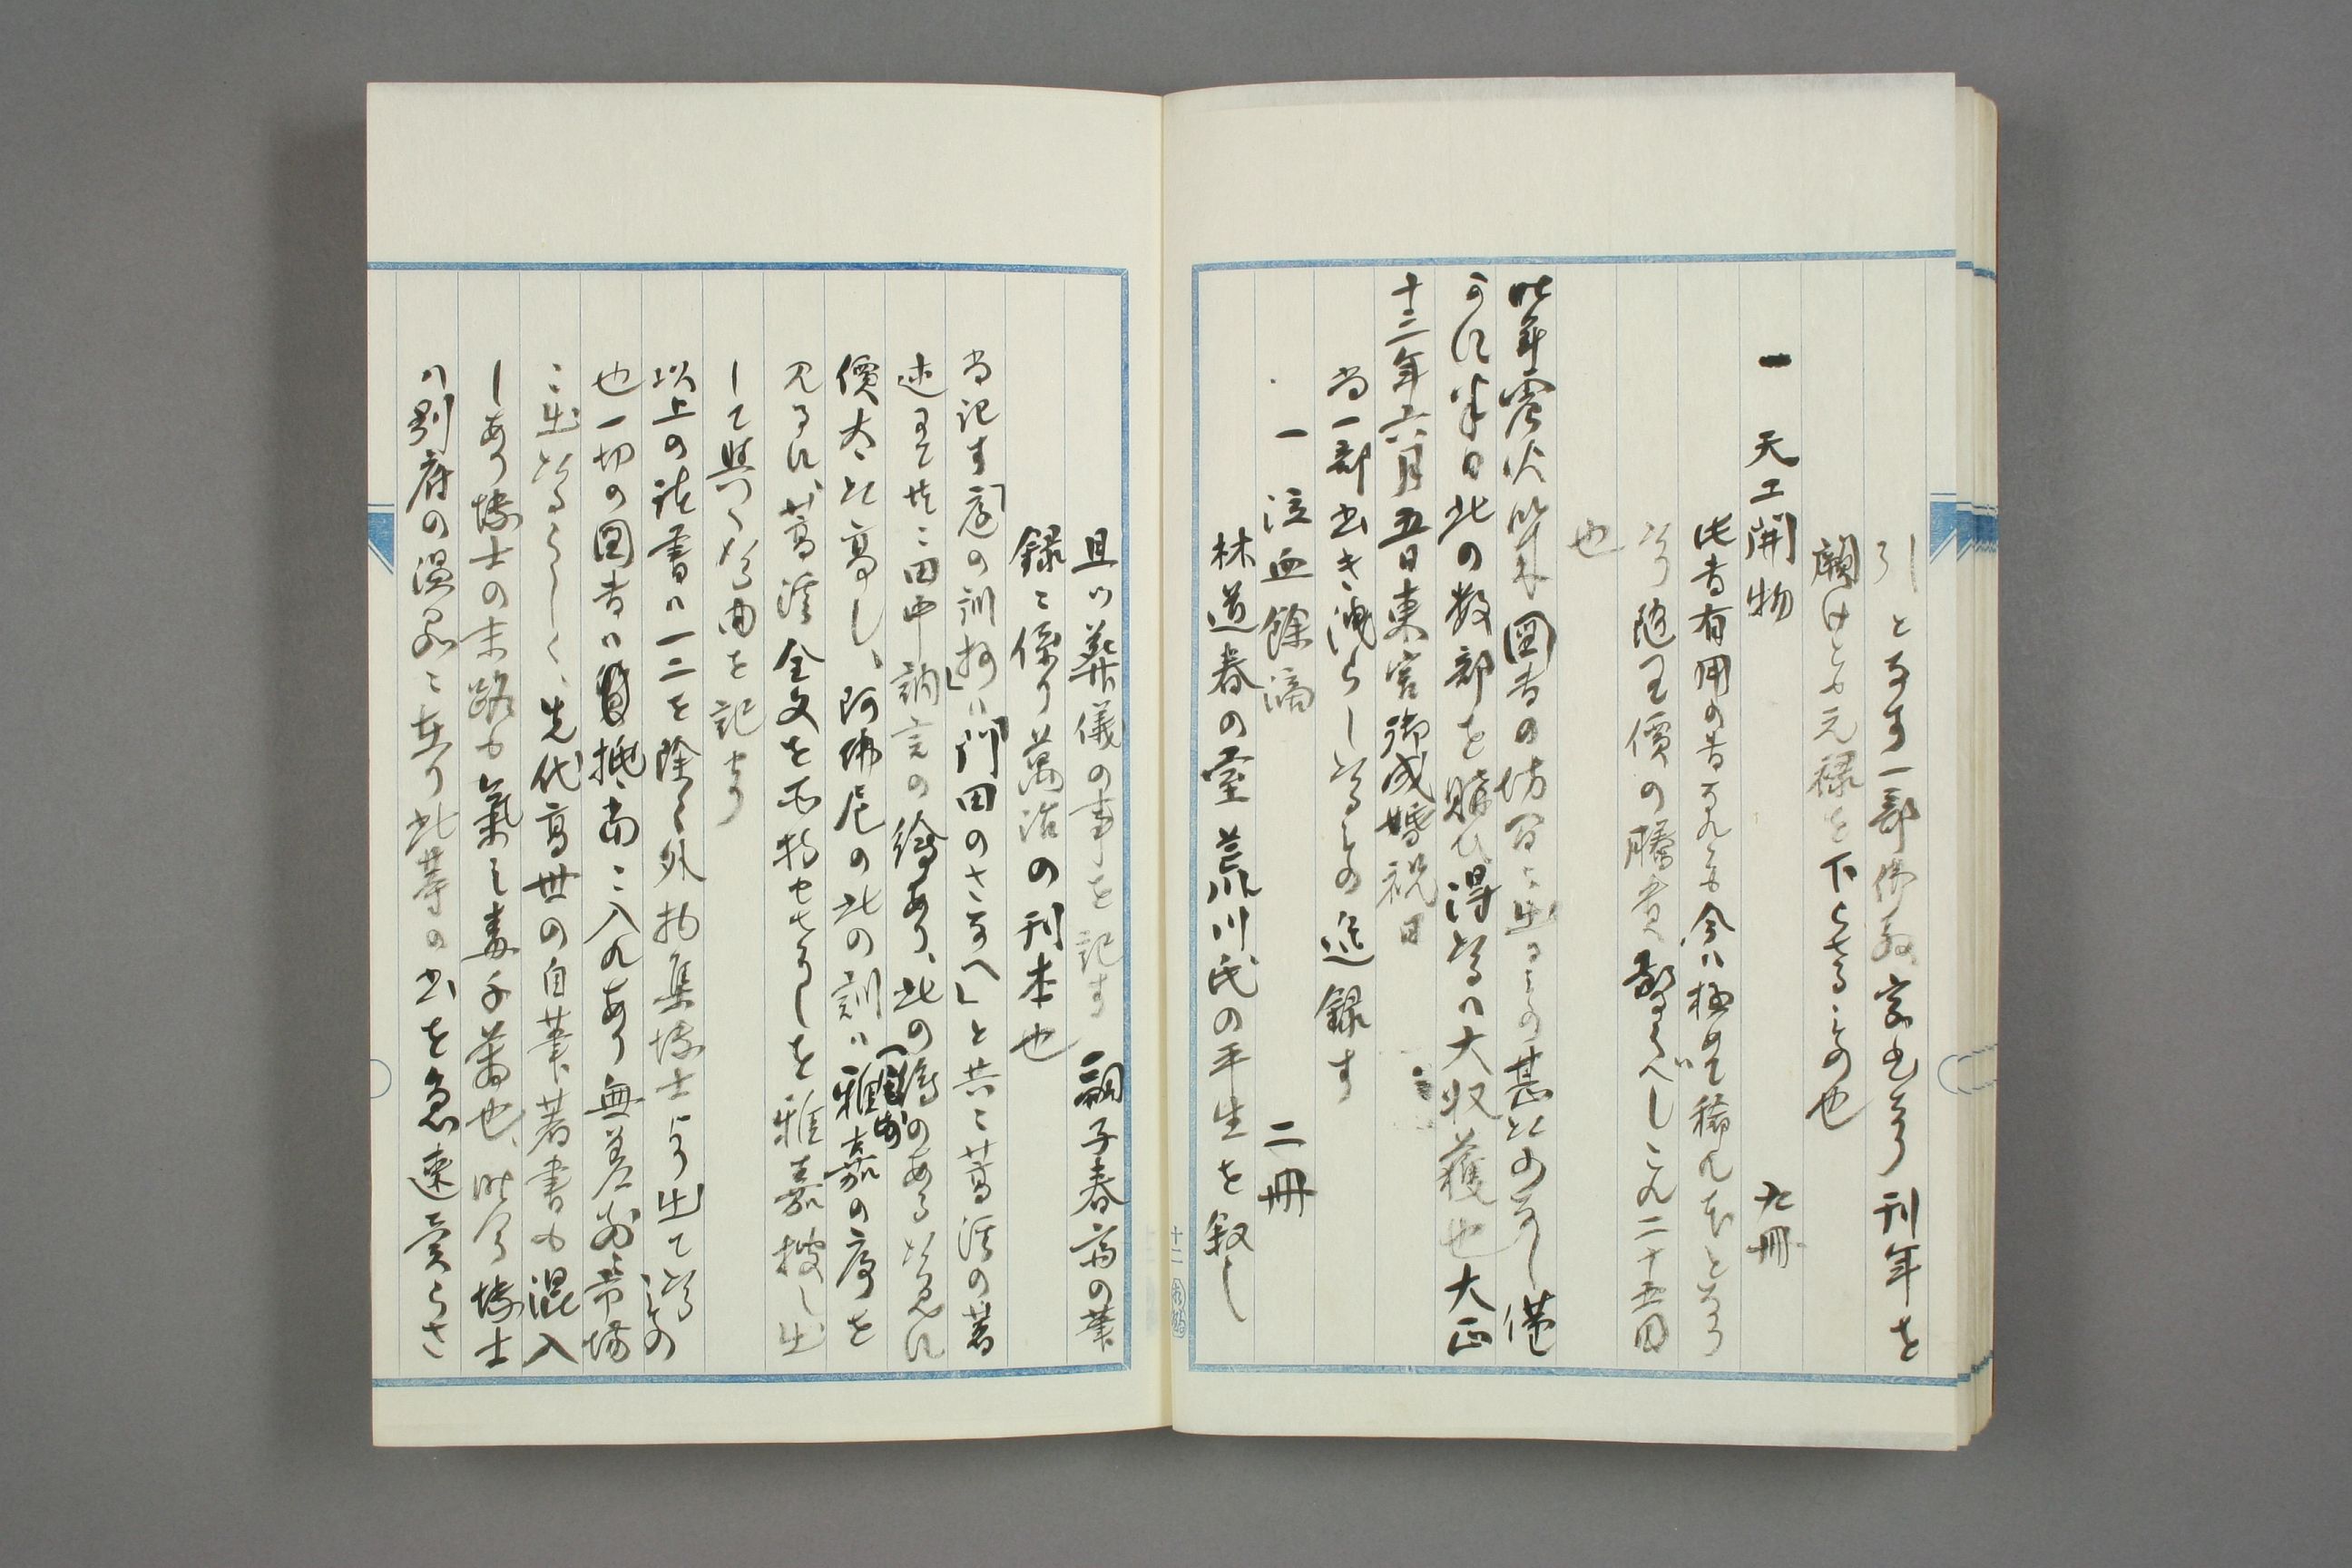 引となす一部佛教家出なり刊年を
闕けとも元禄を下らさるもの也
一 天工開物 九冊
此書有用の書なれとも今ハ極めて稀れ也となり
随て價の騰貴驚くべしこれ二十五円
也
昨年震火以来図書の坊間に出るもの甚たのなし僅
かに半日此の数部を購ひ得たるハ大収獲也大正
十三年六月五日東宮御成婚祝日
尚一部書き洩らしたるもの追録す
一 泣血餘滴 二冊
林道春の室荒川氏の平生を叙し
且ツ葬儀の事を記す 嗣子春齋の筆
録に係り萬治の刊本也
尚記す「庭の訓抄」ハ「門田のさなへ」と共に蒿渓の著
述にて共に田中訥言の繪あり、此の繪のあるため に
價太た高し、阿佛尼の此の訓ハ雅嘉の序を
見るに、蒿渓全文を不持せさりしを雅嘉捜し出
して與へたる由を記せり
以上の諸書ハ一二を除く外 集堺士より出てたるもの
也一切の図書ハ 抵尚 に入れあり無差別に市場
に出たるらしく、先代高世の自筆著書も混入
しあり 士の末路も氣之毒千萬也、昨今 士
ハ別府の温泉に在り此等の書を急速売らさ
十二